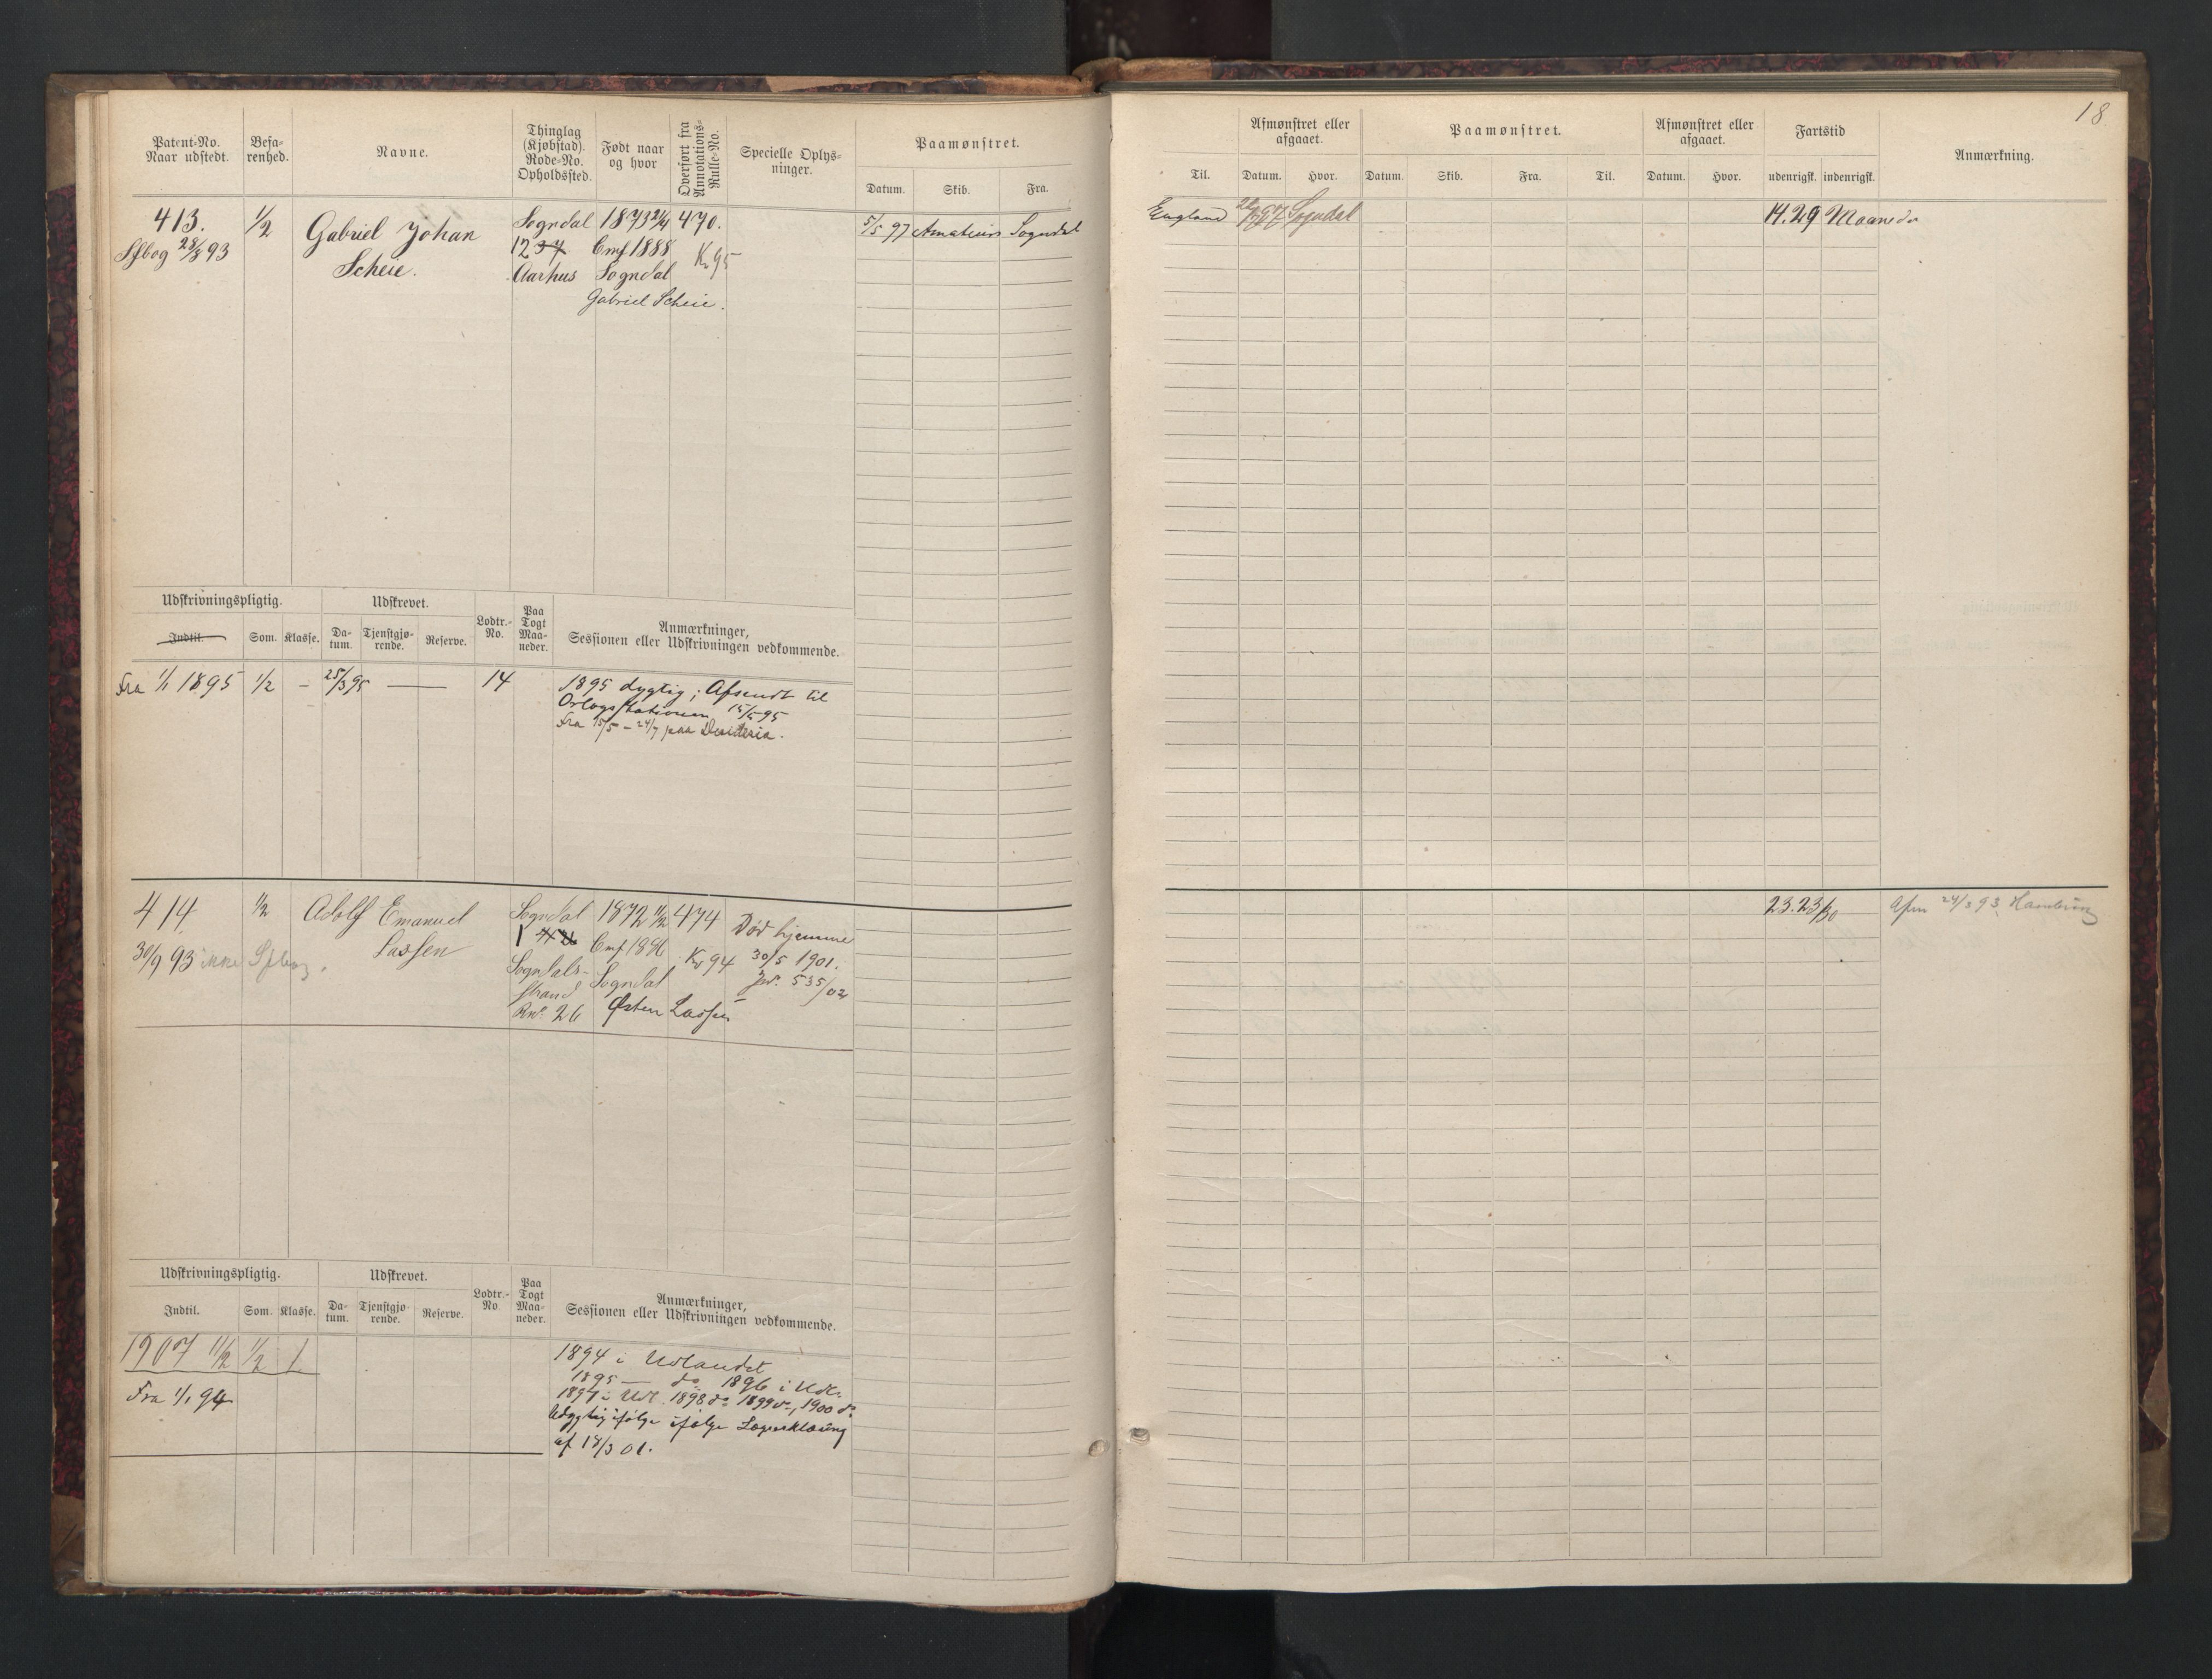 18
Patent-No. Naar udstedt.
Befa-renhed.
Navne.
Thinglag (Kjøbstad). Rode-No. Opholdssted.
Født naar og hvor
Overført fra Annotations-Rulle-No.
Specielle Oplys-ninger.
Paamønstret.
Datum. Skib. Fra.
Til.
Afmønstret eller afgaaet.
Datum. Hvor.
Paamønstret.
Datum. Skib. Fra. Til.
Afmønstret eller afgaaet.
Datum. Hvor.
Fartstid
udenrigsk. indenrigsk.
Anmærkning.
413. 1/2 Gabriel Johan Sogndal 1873 21/4 470. 5/5 97 Amateurs Sogndal England 97 Sogndal 14.29 Maaneder
Sfbog 28/8 93 Scheie. 12 37 Cmf 1888 K 95
Aarhus Sogndal
Gabriel Scheie.
Udskrivningspligtig. Udskrevet.
Indtil. Som. Klasse. Da-tum. Tjenstgjø-rende. Reserve. Lodtr.-No. Paa Togt Maa-neder.
Anmærkninger,
Sessionen eller Udskrivningen vedkommende.
Fra 1/1 1895 1/2 – 25/3 95 — 14 1895 dygtig; Afsendt til
Orlogsstationen 15/5 95
Fra 15/5 – 24/7 paa Desideria.
414 1/2 Adolf Emanuel Sogndal 1872 11/2 474 Død hjemme 23.23/30 Afm 24/8 93 Hamburg
30/9 93 ikke Sfbog. Lassen 1 Cmf 1886 K 94 30/5 1901.
Sogndals- Sogndal Jr. 535/02
strand
Rno. 26 Østen Lassen
Udskrivningspligtig. Udskrevet.
Indtil. Som. Klasse. Da-tum. Tjenstgjø-rende. Reserve. Lodtr.-No. Paa Togt Maa-neder.
Anmærkninger,
Sessionen eller Udskrivningen vedkommende.
1907 11/2 1/2 1 1894 i Udlandet
Fra 1/1 94 1895 — do 1896 i Udl.
1897 i Udl. 1898 do 1899 do, 1900 do
Udygtig ifølge ifølge Lægeerklæring
af 18/3 01.